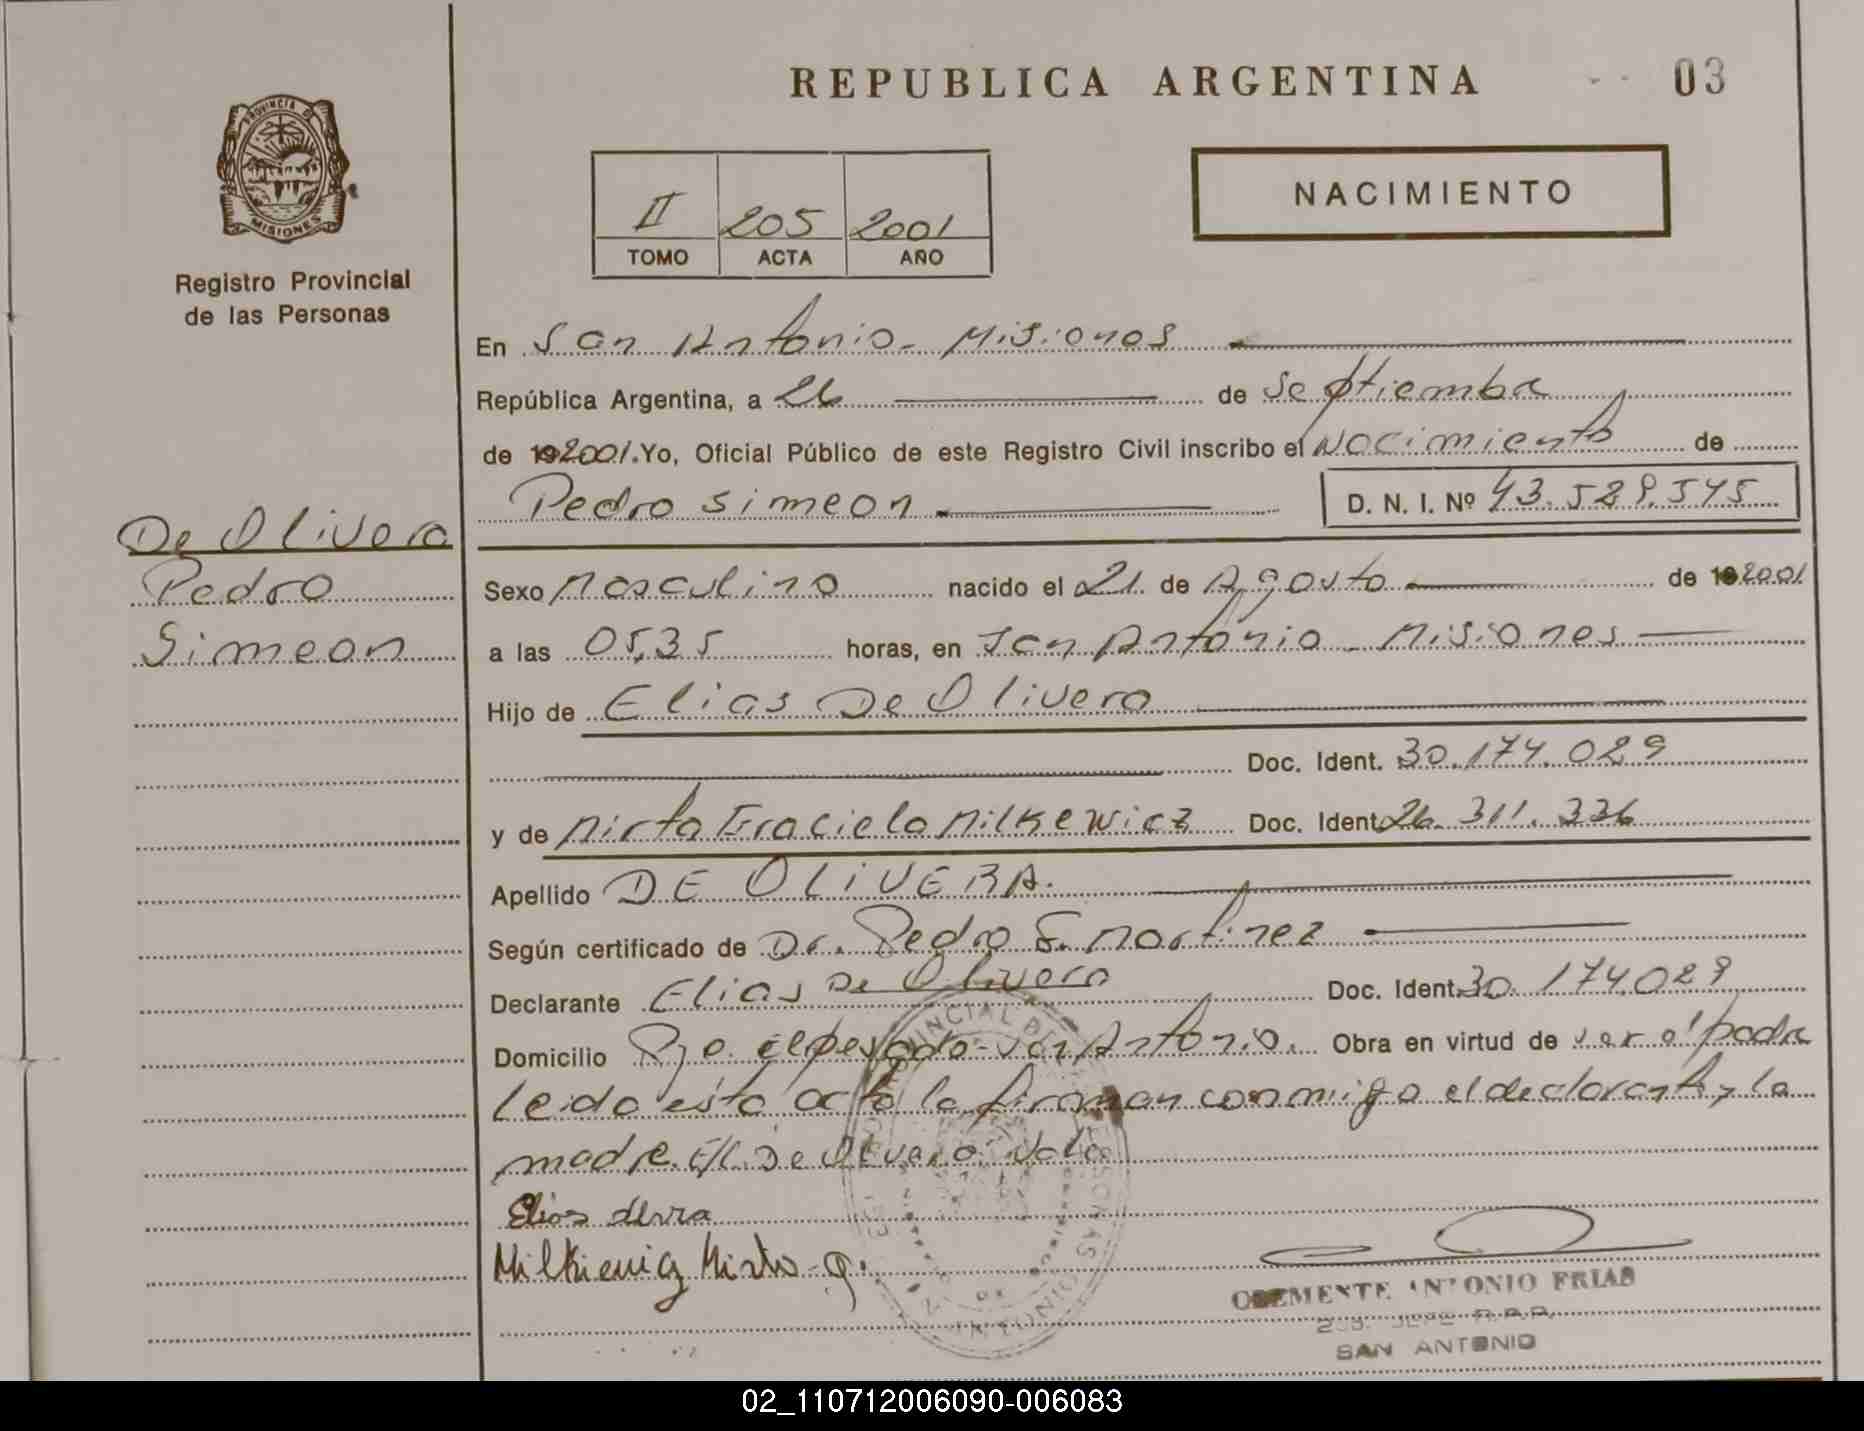 REPUBLICA ARGENTINA
03
PROVINCIA DE
MISIONES
Registro Provincial
de las Personas
II 205 2001
TOMO ACTA AÑO
NACIMIENTO
En San Antonio - Misiones
República Argentina, a 26 de Septiembre
de 192001. Yo, Oficial Público de este Registro Civil inscribo el Nacimiento de
Pedro Simeon D. N. I. Nº 43.529.545
De Olivera
Pedro
Simeon
Sexo Masculino nacido el 21 de Agosto de 192001
a las 05,35 horas, en San Antonio - Misiones
Hijo de Elias De Olivera
Doc. Ident. 30.174.029
y de Mirta Graciela Milkewicz Doc. Ident. 26.311.336
Apellido DE OLIVERA.
Según certificado de Dr. Pedro S. Martinez
Declarante Elias De Olivera Doc. Ident. 30.174.029
Domicilio Pje. el pesado - San Antonio. Obra en virtud de ser el padre
leida esta acta la firman conmigo el declarante y la
madre. E/l. De Olivera Vale
Elias
Mirta G.
CLEMENTE ANTONIO FRIAS
SAN ANTONIO
02_110712006090-006083